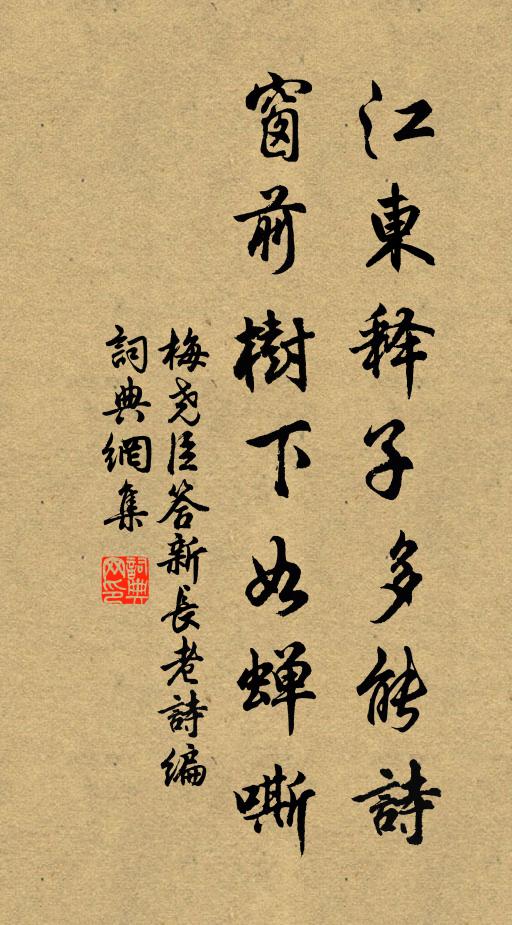 江東释子多能詩
窗前樹下如蝉嘶
梅尧臣答新長老詩编
詞典網集
詞典網印